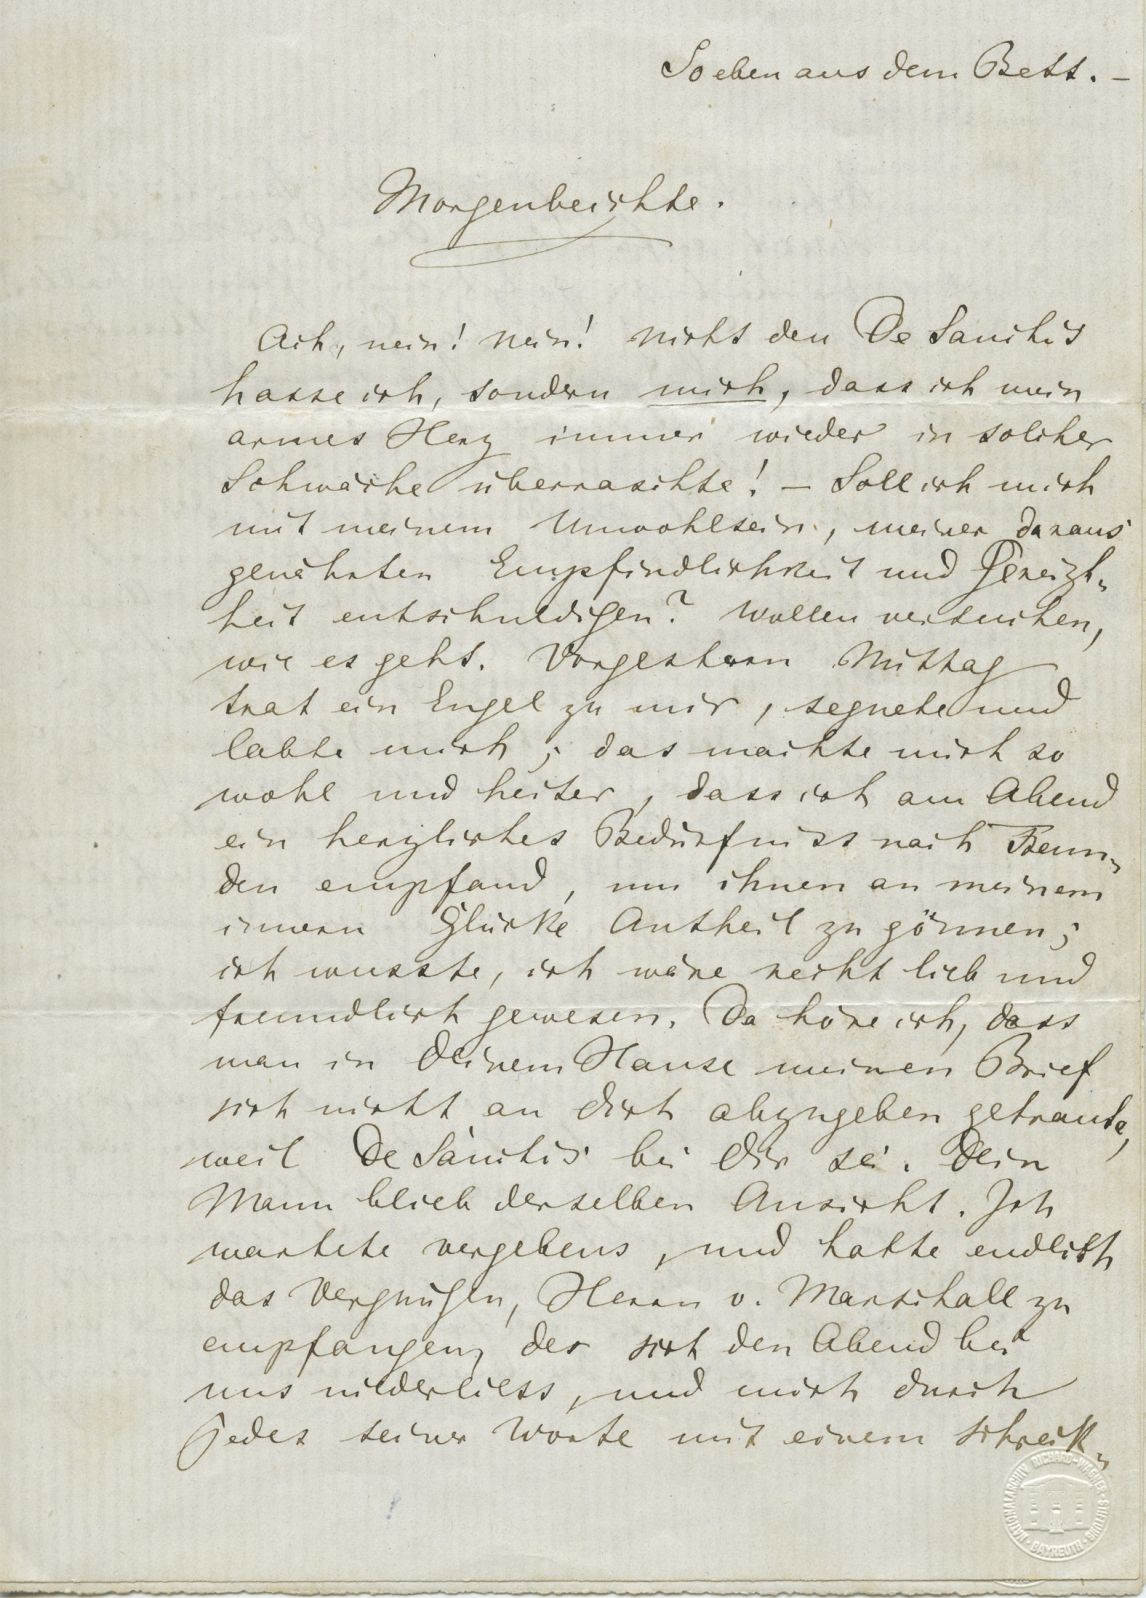 So eben aus dem Bett. –
Morgenbeichte.
Ach, nein! Nein! Nicht den De Sanctis
hasse ich, sondern mich, dass ich mein
armes Herz immer wieder in solcher
Schwäche überraschte! – Soll ich mich
mit meinem Unwohlsein, meiner daraus
genährten Empfindlichkeit und Gereizt-
heit entschuldigen? Wollen versuchen,
wie es geht. Vorgestern Mittag
trat ein Engel zu mir, segnete und
labte mich; das machte mich so
wohl und heiter, dass ich am Abend
ein herzliches Bedürfniss nach Freun-
den empfand, um ihnen an meinem
innern Glücke Antheil zu gönnen;
ich wusste, ich wäre recht lieb und
freundlich gewesen. Da höre ich, dass
man in Deinem Hause meinen Brief
sich nicht an Dich abzugeben getraute,
weil De Sanctis bei Dir sei. Dein
Mann blieb derselben Ansicht. Ich
wartete vergebens, und hatte endlich
das Vergnügen, Herrn v. Marschall zu
empfangen, der sich den Abend bei
uns niederliess, und mich durch
jedes seiner Worte mit einem schreck-
NATIONALARCHIV RICHARD-WAGNER-STIFTUNG BAYREUTH